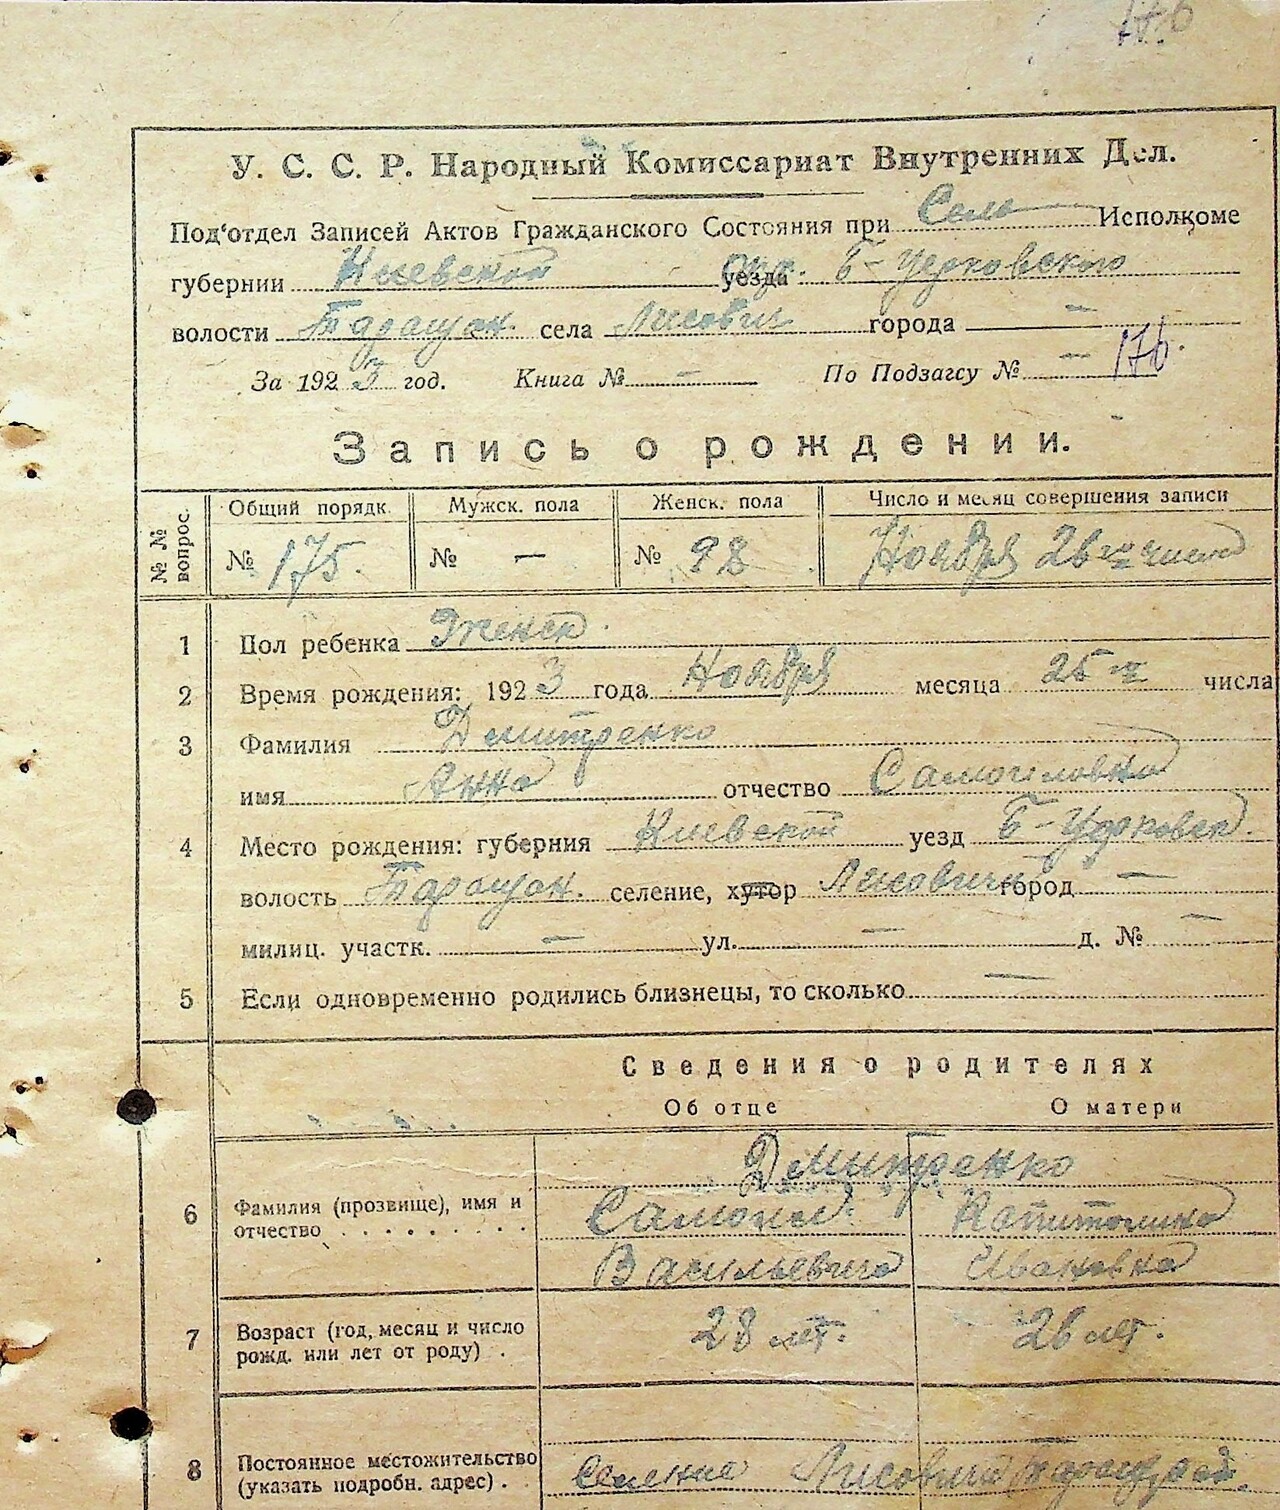 176
У. С. С. Р. Народный Комиссариат Внутренних Дел.
Под'отдел Записей Актов Гражданского Состояния при Сель Исполкоме
губернии Киевской уезда Окр. Б-Церковского
волости Таращан. села Лисович города —
За 1923 год. Книга № — По Подзагсу № — 176.
Запись о рождении.
№ № вопрос. Общий порядк. Мужск. пола Женск. пола Число и месяц совершения записи
№ 175. № — № 98 Ноября 26го числа
1 Пол ребенка Женск.
2 Время рождения: 1923 года Ноября месяца 25го числа
3 Фамилия Дмитренко
имя Анна отчество Самойловна
4 Место рождения: губерния Киевской уезд Б-Церковск.
волость Таращан. селение, хутор Лисовичи город —
милиц. участк. — ул. — д. № —
5 Если одновременно родились близнецы, то сколько —
Сведения о родителях
Об отце О матери
Дмитренко
6 Фамилия (прозвище), имя и Самоил Капитолина
отчество . . . . . . Васильевич Ивановна
7 Возраст (год, месяц и число 28 лет. 26 лет.
рожд. или лет от роду) .
8 Постоянное местожительство
(указать подробн. адрес) . селение Лисовичи